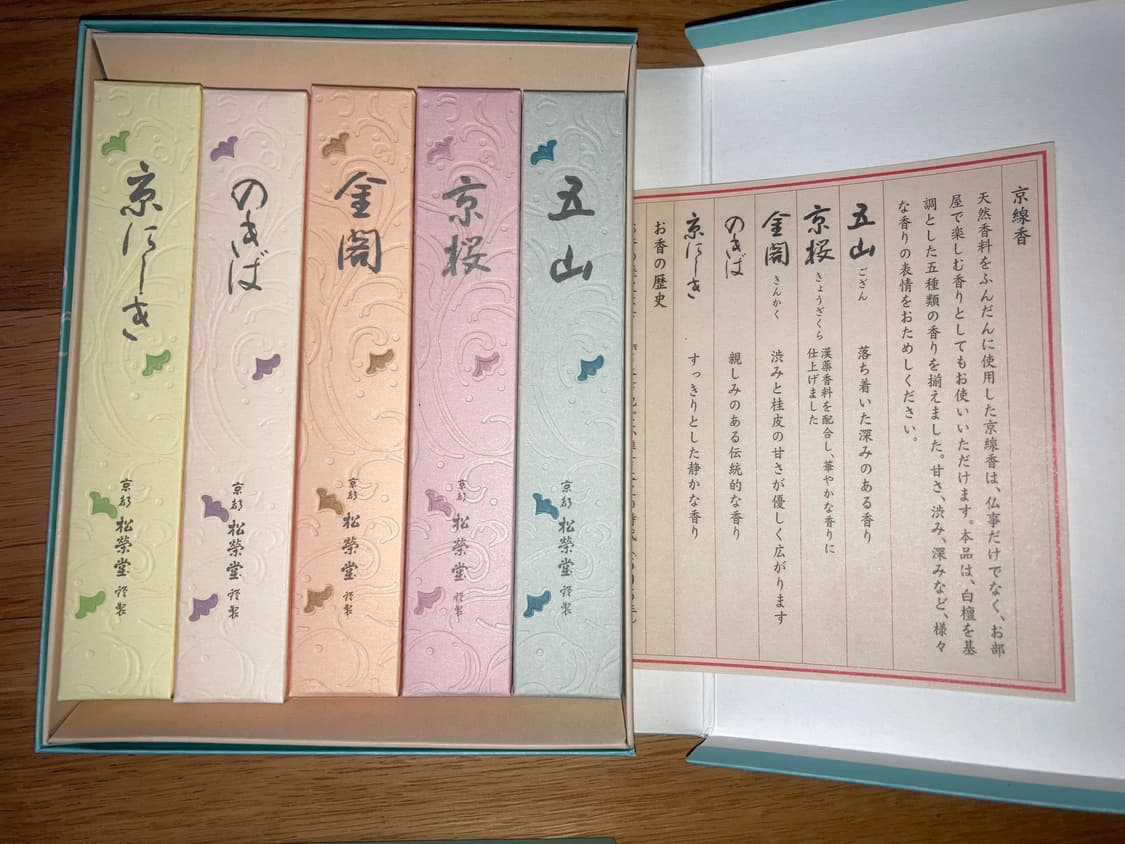 京にしき
京都 松榮堂 謹製
のきば
京都 松榮堂 謹製
金閣
京都 松榮堂 謹製
京桜
京都 松榮堂 謹製
五山
京都 松榮堂 謹製
京線香
天然香料をふんだんに使用した京線香は、仏事だけでなく、お部
屋で楽しむ香りとしてもお使いいただけます。本品は、白檀を基
調とした五種類の香りを揃えました。甘さ、渋み、深みなど、様々
な香りの表情をおためしください。
五山 ござん 落ち着いた深みのある香り
京桜 きょうざくら 漢薬香料を配合し、華やかな香りに
仕上げました
金閣 きんかく 渋みと桂皮の甘さが優しく広がります
のきば 親しみのある伝統的な香り
京にしき すっきりとした静かな香り
お香の歴史